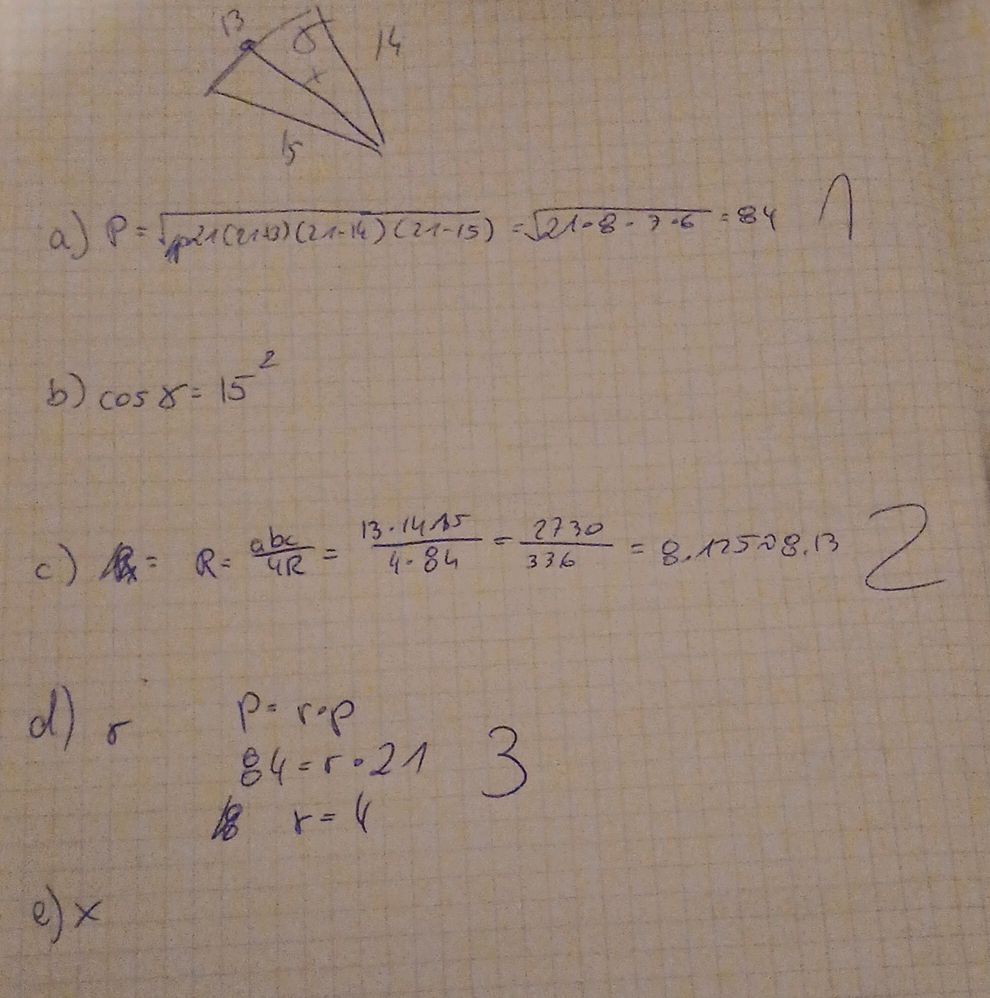 13
γ
14
x
15
a) P = √p21(21-13)(21-14)(21-15) = √21·8·7·6 = 84 1
b) cos γ = 15²
c) = R = abc/4R = 13·14·15/4·84 = 2730/336 = 8.125≈8.13 2
d) r P = r·p
84 = r·21 3
r = 4
e) x